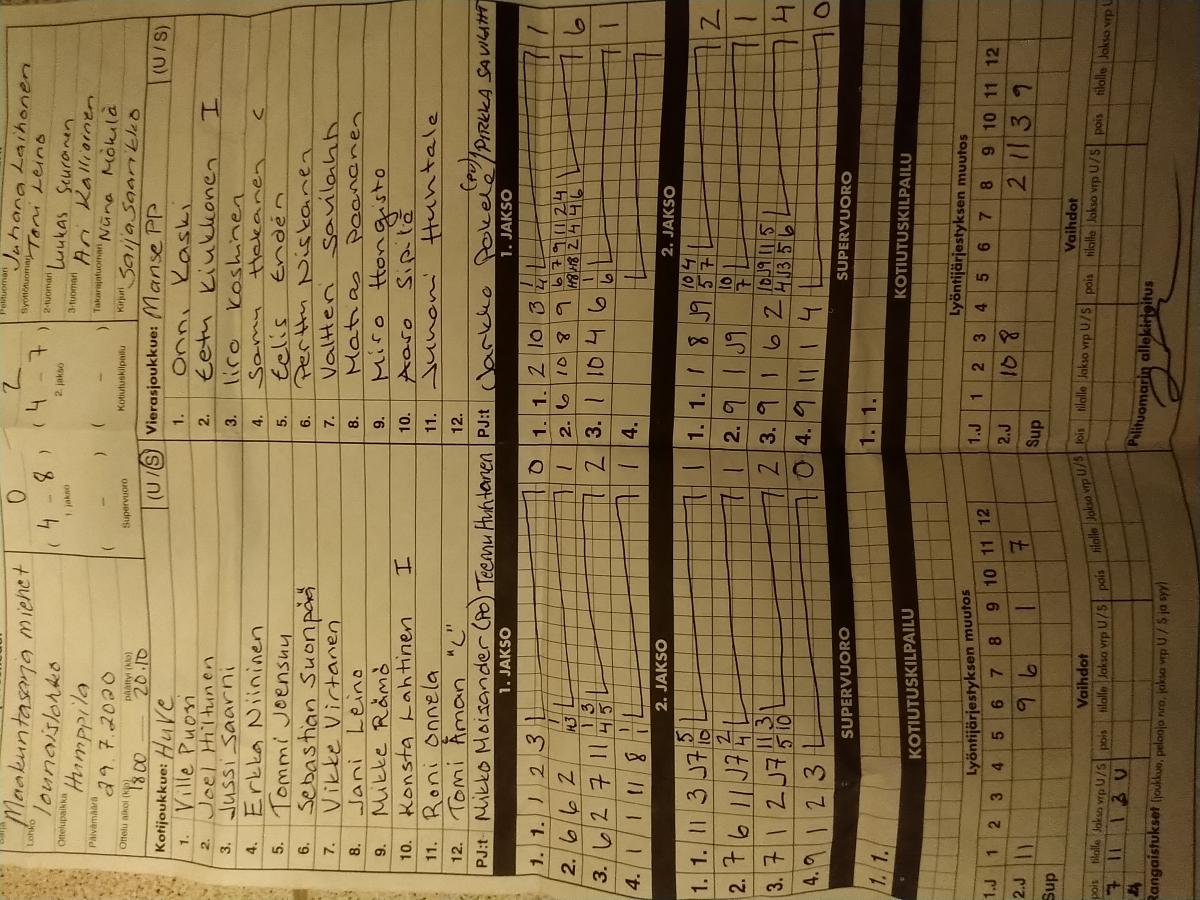 Maakuntasarja miehet
Lohko Lounaislohko
Ottelupaikka Humppila
Päivämäärä 29.7.2020
Ottelu alkoi (klo) 1800 päättyi (klo) 20.10
0 2
( 4 - 8 ) ( 4 - 7 )
1. jakso 2. jakso
( - ) ( - )
Supervuoro Kotiutuskilpailu
Pelituomari Juhana Laihonen
Syöttötuomari Toni Leino
2-tuomari Luukas Seuranen
3-tuomari Ari Kallioinen
Takarajatuomari Niina Mökülä
Kirjuri Saija Saarikko
Kotijoukkue: HuVe (U / S)
1. Ville Puori
2. Joel Hiltunen
3. Jussi Saarni
4. Erkka Niininen
5. Tommi Joensuu
6. Sebastian Suonpää
7. Vikke Virtanen
8. Jani Leino
9. Mikke Rämö
10. Konsta Lahtinen I
11. Roni Onnela
12. Tomi Åman "C"
PJ:t Mikko Moisander (PO) Teemu Huhtanen
Vierasjoukkue: Manse PP (U / S)
1. Onni Kaski
2. Eetu Kiukkonen I
3. Iiro Koskinen
4. Samu Hakanen C
5. Eelis Endén
6. Perttu Niskanen
7. Valtteri Savilahti
8. Matias Paananen
9. Miro Hongisto
10. Aaro Sipilä
11. Juhani Huhtala
12.
PJ:t Jarkko Pokela (PO) / PIRKKA SAVILAHTI
1. JAKSO
1. 1. 1 2 3 0
2. 6 6 2 1
3. 6 2 7 11 2
4. 1 11 8 1
2. JAKSO
1. 1. 11 3 J7 1
2. 7 6 11 J7 1
3. 7 1 2 J7 2
4. 9 1 2 3 0
SUPERVUORO
1. 1.
KOTIUTUSKILPAILU
Lyöntijärjestyksen muutos
1.J 1 2 3 4 5 6 7 8 9 10 11 12
2.J 11 9 6 1 7
Sup
Vaihdot
pois tilalle Jakso vrp U/S pois tilalle Jakso vrp U/S pois tilalle Jakso vrp U/S
7 11 1 3 U
4
Rangaistukset (joukkue, pelaaja nro, jakso vrp U / S ja syy)
1. JAKSO
1. 1. 2 10 3 1
2. 6 10 8 9 6
3. 1 10 4 6 1
4.
2. JAKSO
1. 1. 1 8 J9 2
2. 9 1 J9 1
3. 9 1 6 2 4
4. 9 11 1 4 0
SUPERVUORO
1. 1.
KOTIUTUSKILPAILU
Lyöntijärjestyksen muutos
1.J 1 2 3 4 5 6 7 8 9 10 11 12
2.J 10 8 2 11 3 9
Sup
Vaihdot
pois tilalle Jakso vrp U/S pois tilalle Jakso vrp U/S pois tilalle Jakso vrp U
Pelituomarin allekirjoitus